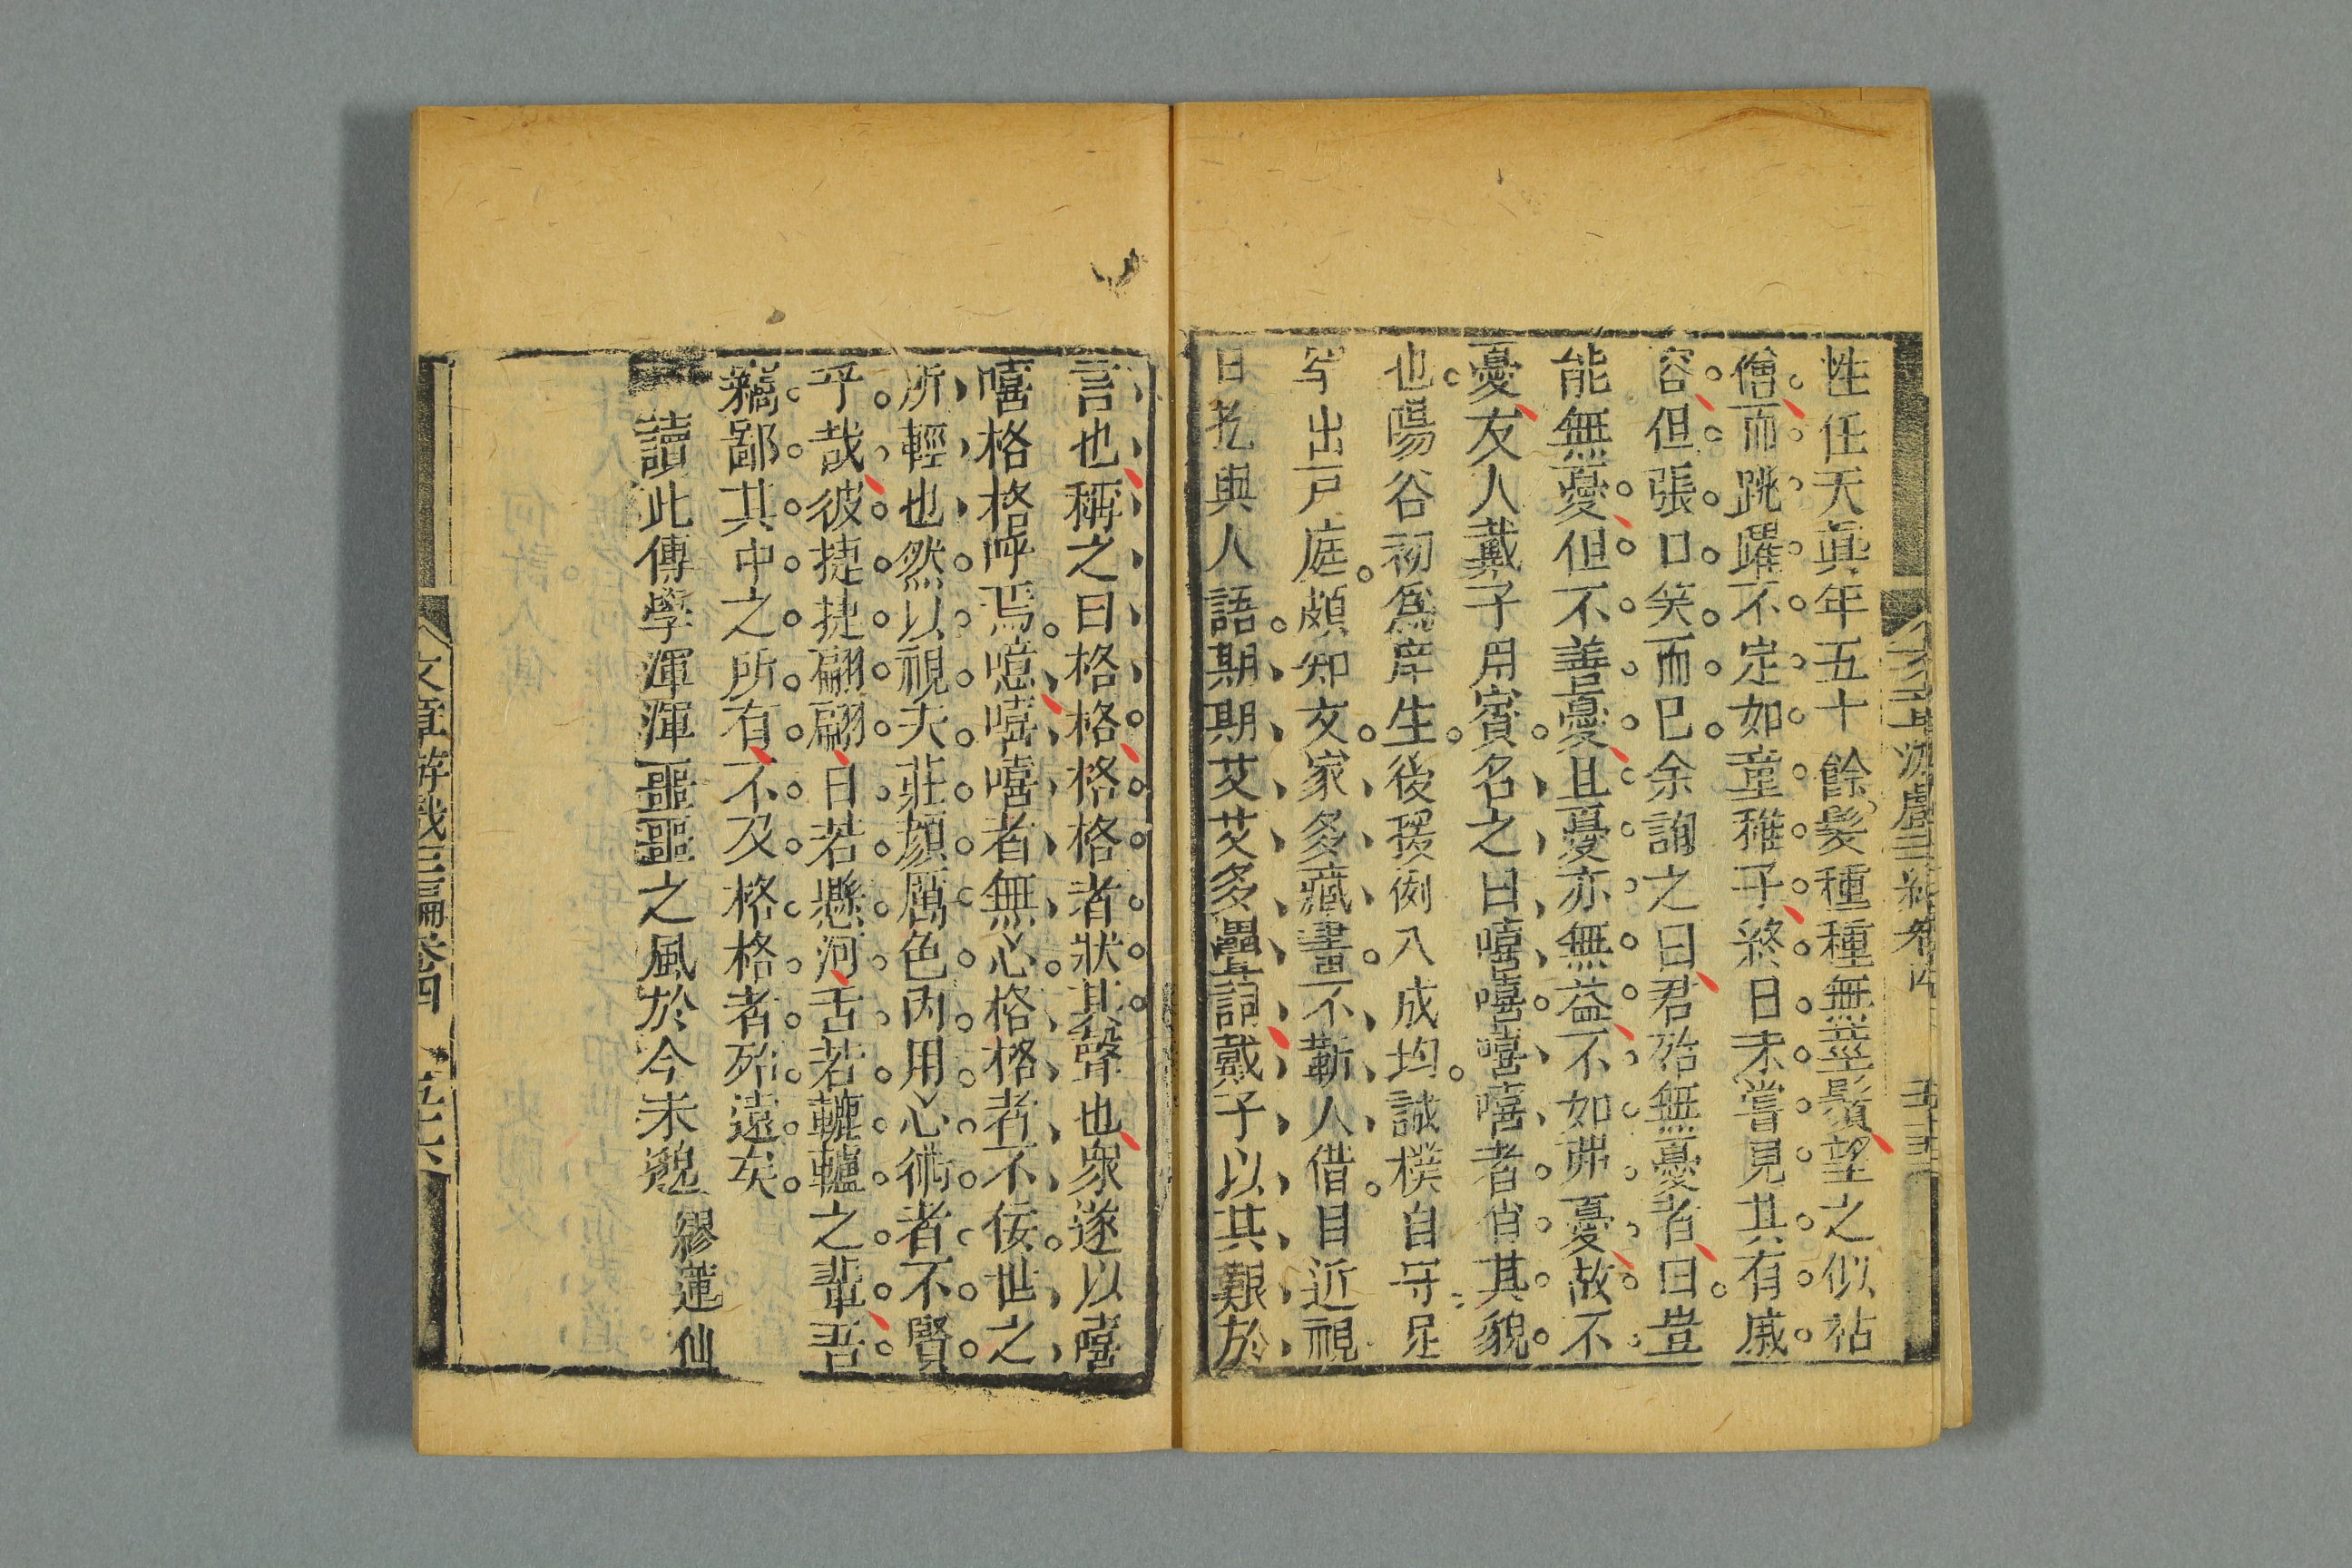 性任天真年五十餘髮種種無莖鬚望之似祜
僧而跳躍不定如童稚子終日未嘗見其有戚
容但張口笑而已余詢之曰君殆無憂者曰豈
能無憂但不善憂且憂亦無益不如弗憂故不
憂友人戴子用賓名之曰嘻嘻嘻嘻者肖其貌
也陽谷初爲庠生後援例入成均誠樸自守足
罕出戸庭頗知友家多藏畫不靳人借目近視
口訖與人語期期艾艾多疊詞戴子以其艱於
言也稱之曰格格格格者狀其聲也眾遂以嘻
嘻格格呼焉噫嘻嘻者無心格格者不佞世之
所輕也然以視夫莊顏厲色內用心術者不賢
乎哉彼捷捷翩翩日若懸河舌若轆轤之輩吾
竊鄙其中之所有不及格格者殆遠矣
讀此傳學渾渾噩噩之風於今未邈 繆蓮仙
文章游戲三編卷四 五十六